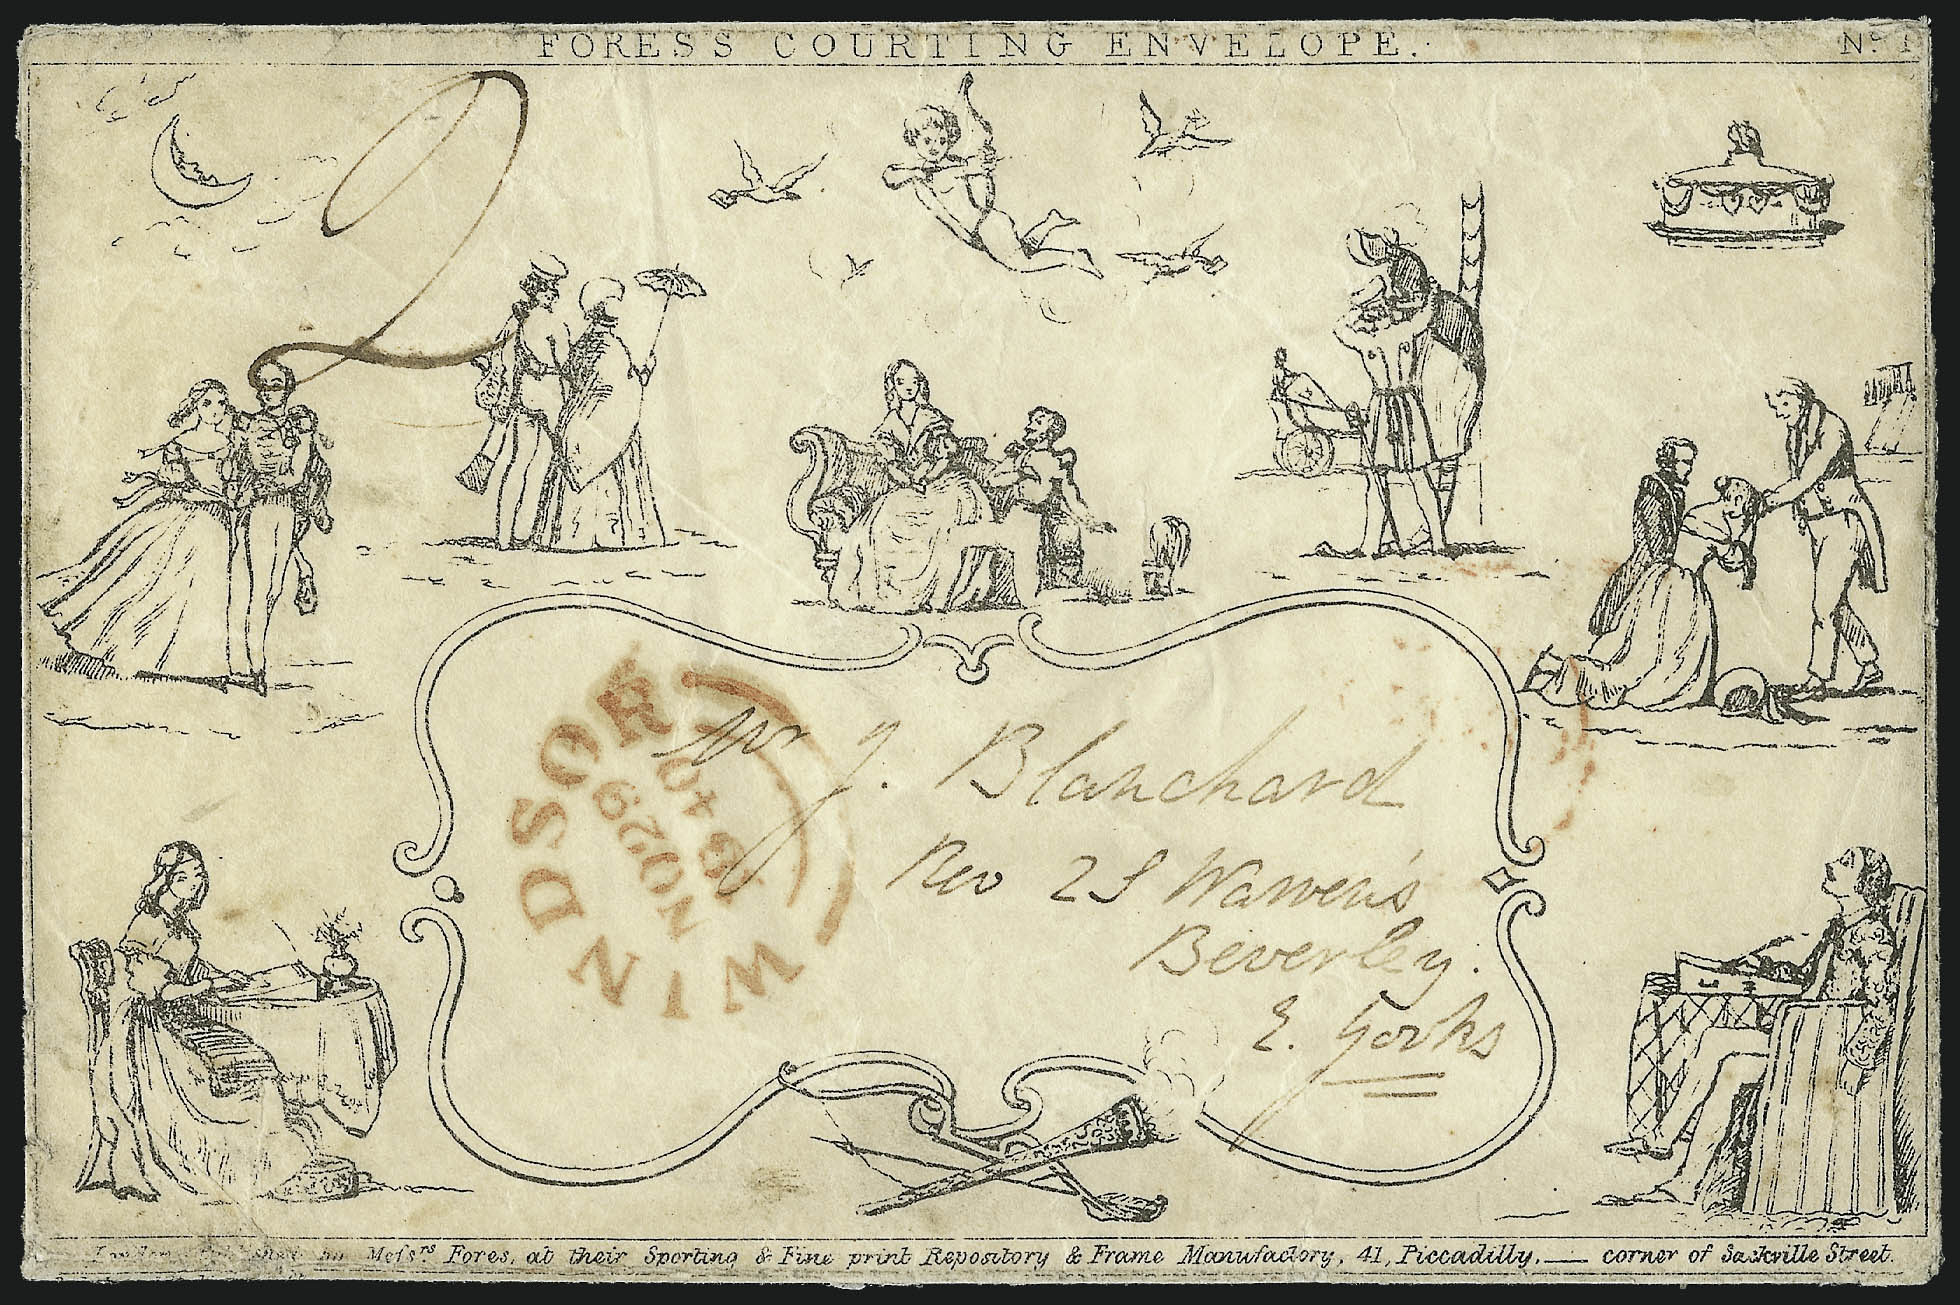 FORES'S COURTING ENVELOPE.
No. 1
2
WINDSOR
NO 29
1840
Mr J. Blanchard
Rev 2 S Warren's
Beverley.
E. Yorks
London, Published by Messrs Fores, at their Sporting & Fine print Repository & Frame Manufactory, 41, Piccadilly, — corner of Sackville Street.